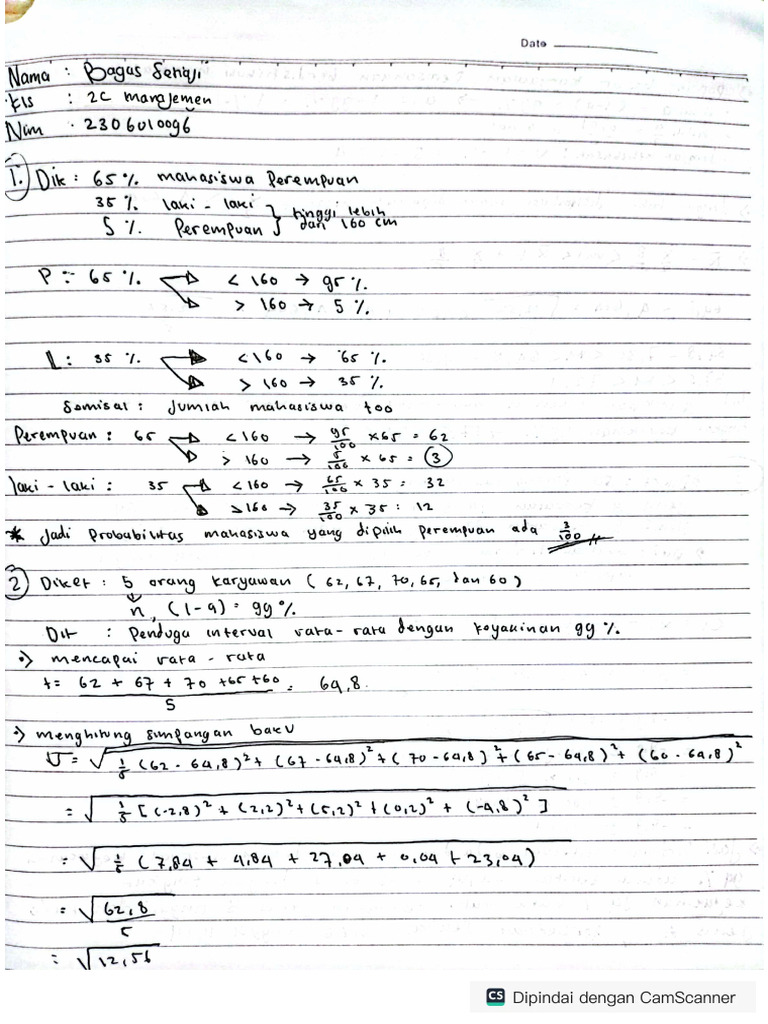 Date
Nama : Bagus Senaji
Kls : 2C manajemen
Nim : 2306010096
1. Dik : 65 % mahasiswa Perempuan
35 % laki - laki
5 % Perempuan } tinggi lebih dari 160 cm
P : 65 % < 160 → 95 %.
> 160 → 5 %.
L : 35 % < 160 → 65 %.
> 160 → 35 %.
Semisal : Jumlah mahasiswa 100
Perempuan : 65 < 160 → 95/100 x 65 = 62
> 160 → 5/100 x 65 = 3
laki - laki : 35 < 160 → 65/100 x 35 : 32
> 160 → 35/100 x 35 : 12
* Jadi Probabilitas mahasiswa yang dipilih perempuan ada 3/100 //
2 Diket : 5 orang karyawan ( 62, 67, 70, 65, dan 60 )
n, (1-a) = 99 %.
Dit : Penduga interval rata-rata dengan keyakinan 99 %.
•) mencapai rata - rata
t = 62 + 67 + 70 + 65 + 60 / 5 = 64,8.
•) menghitung simpangan baku
σ = √ 1/5 (62 - 64,8)² + (67 - 64,8)² + ( 70 - 64,8 )² + (65 - 64,8)² + (60 - 64,8)²
= √ 1/5 [ (-2,8)² + (2,2)² + (5,2)² + (0,2)² + (-4,8)² ]
= √ 1/5 ( 7,84 + 4,84 + 27,04 + 0,04 + 23,04)
= √ 62,8 / 5
= √ 12,56
CS Dipindai dengan CamScanner